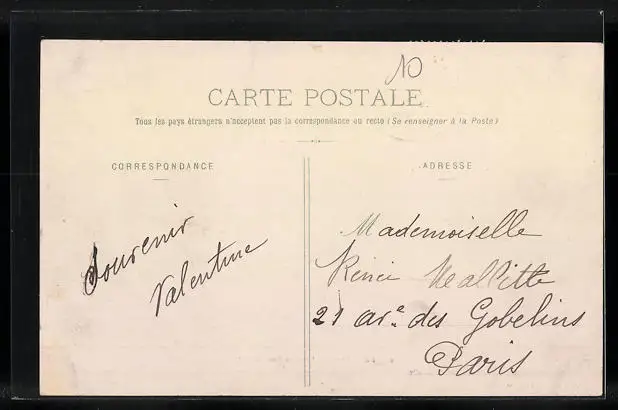 10
CARTE POSTALE
Tous les pays étrangers n'acceptent pas la correspondance au recto (Se renseigner à la Poste)
CORRESPONDANCE
ADRESSE
Souvenir
Valentine
Mademoiselle
21 av.e des Gobelins
Paris